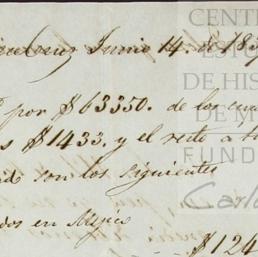 Veracruz Junio 14. de 183
por $63350. de los cua
s $1433. y el resto a
son los siguientes
dos en Mejico
$124
CENT
EST
DE HIS
DE M
FUND
Carlo